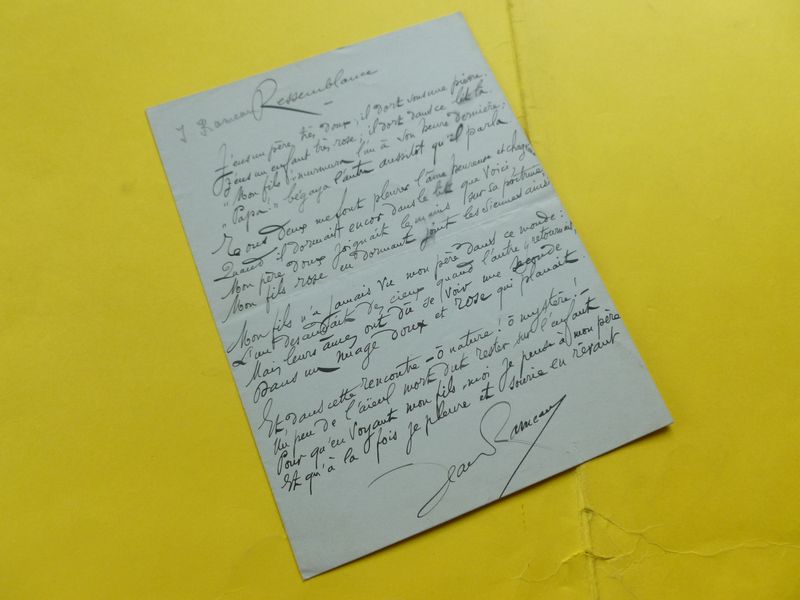 J Rameau Ressemblance
J'eus un père très doux; il dort sous une pierre.
J'eus un enfant très rose; il dort dans ce lit là.
"Mon fils!" murmura l'un à son heure dernière;
"Papa!" bégaya l'autre aussitôt qu'il parla
Tous deux me font pleurer l'âme heureuse et
Quand il dormait encor dans le lit que voici,
Mon père doux joignait les mains sur sa poitrine,
Mon fils rose en dormant joint les siennes ainsi
Mon fils n'a jamais vu mon père dans ce monde:
L'un descendait des cieux quand l'autre y retournait,
Mais leurs âmes ont dû se voir une seconde
Dans un nuage doux et rose qui planait.
Et dans cette rencontre - ô nature! ô mystère! -
Un peu de l'aïeul mort dut rester sur l'enfant
Pour qu'en voyant mon fils, moi je pense à mon père
Et qu'à la fois je pleure et sourie en rêvant
Jean Rameau